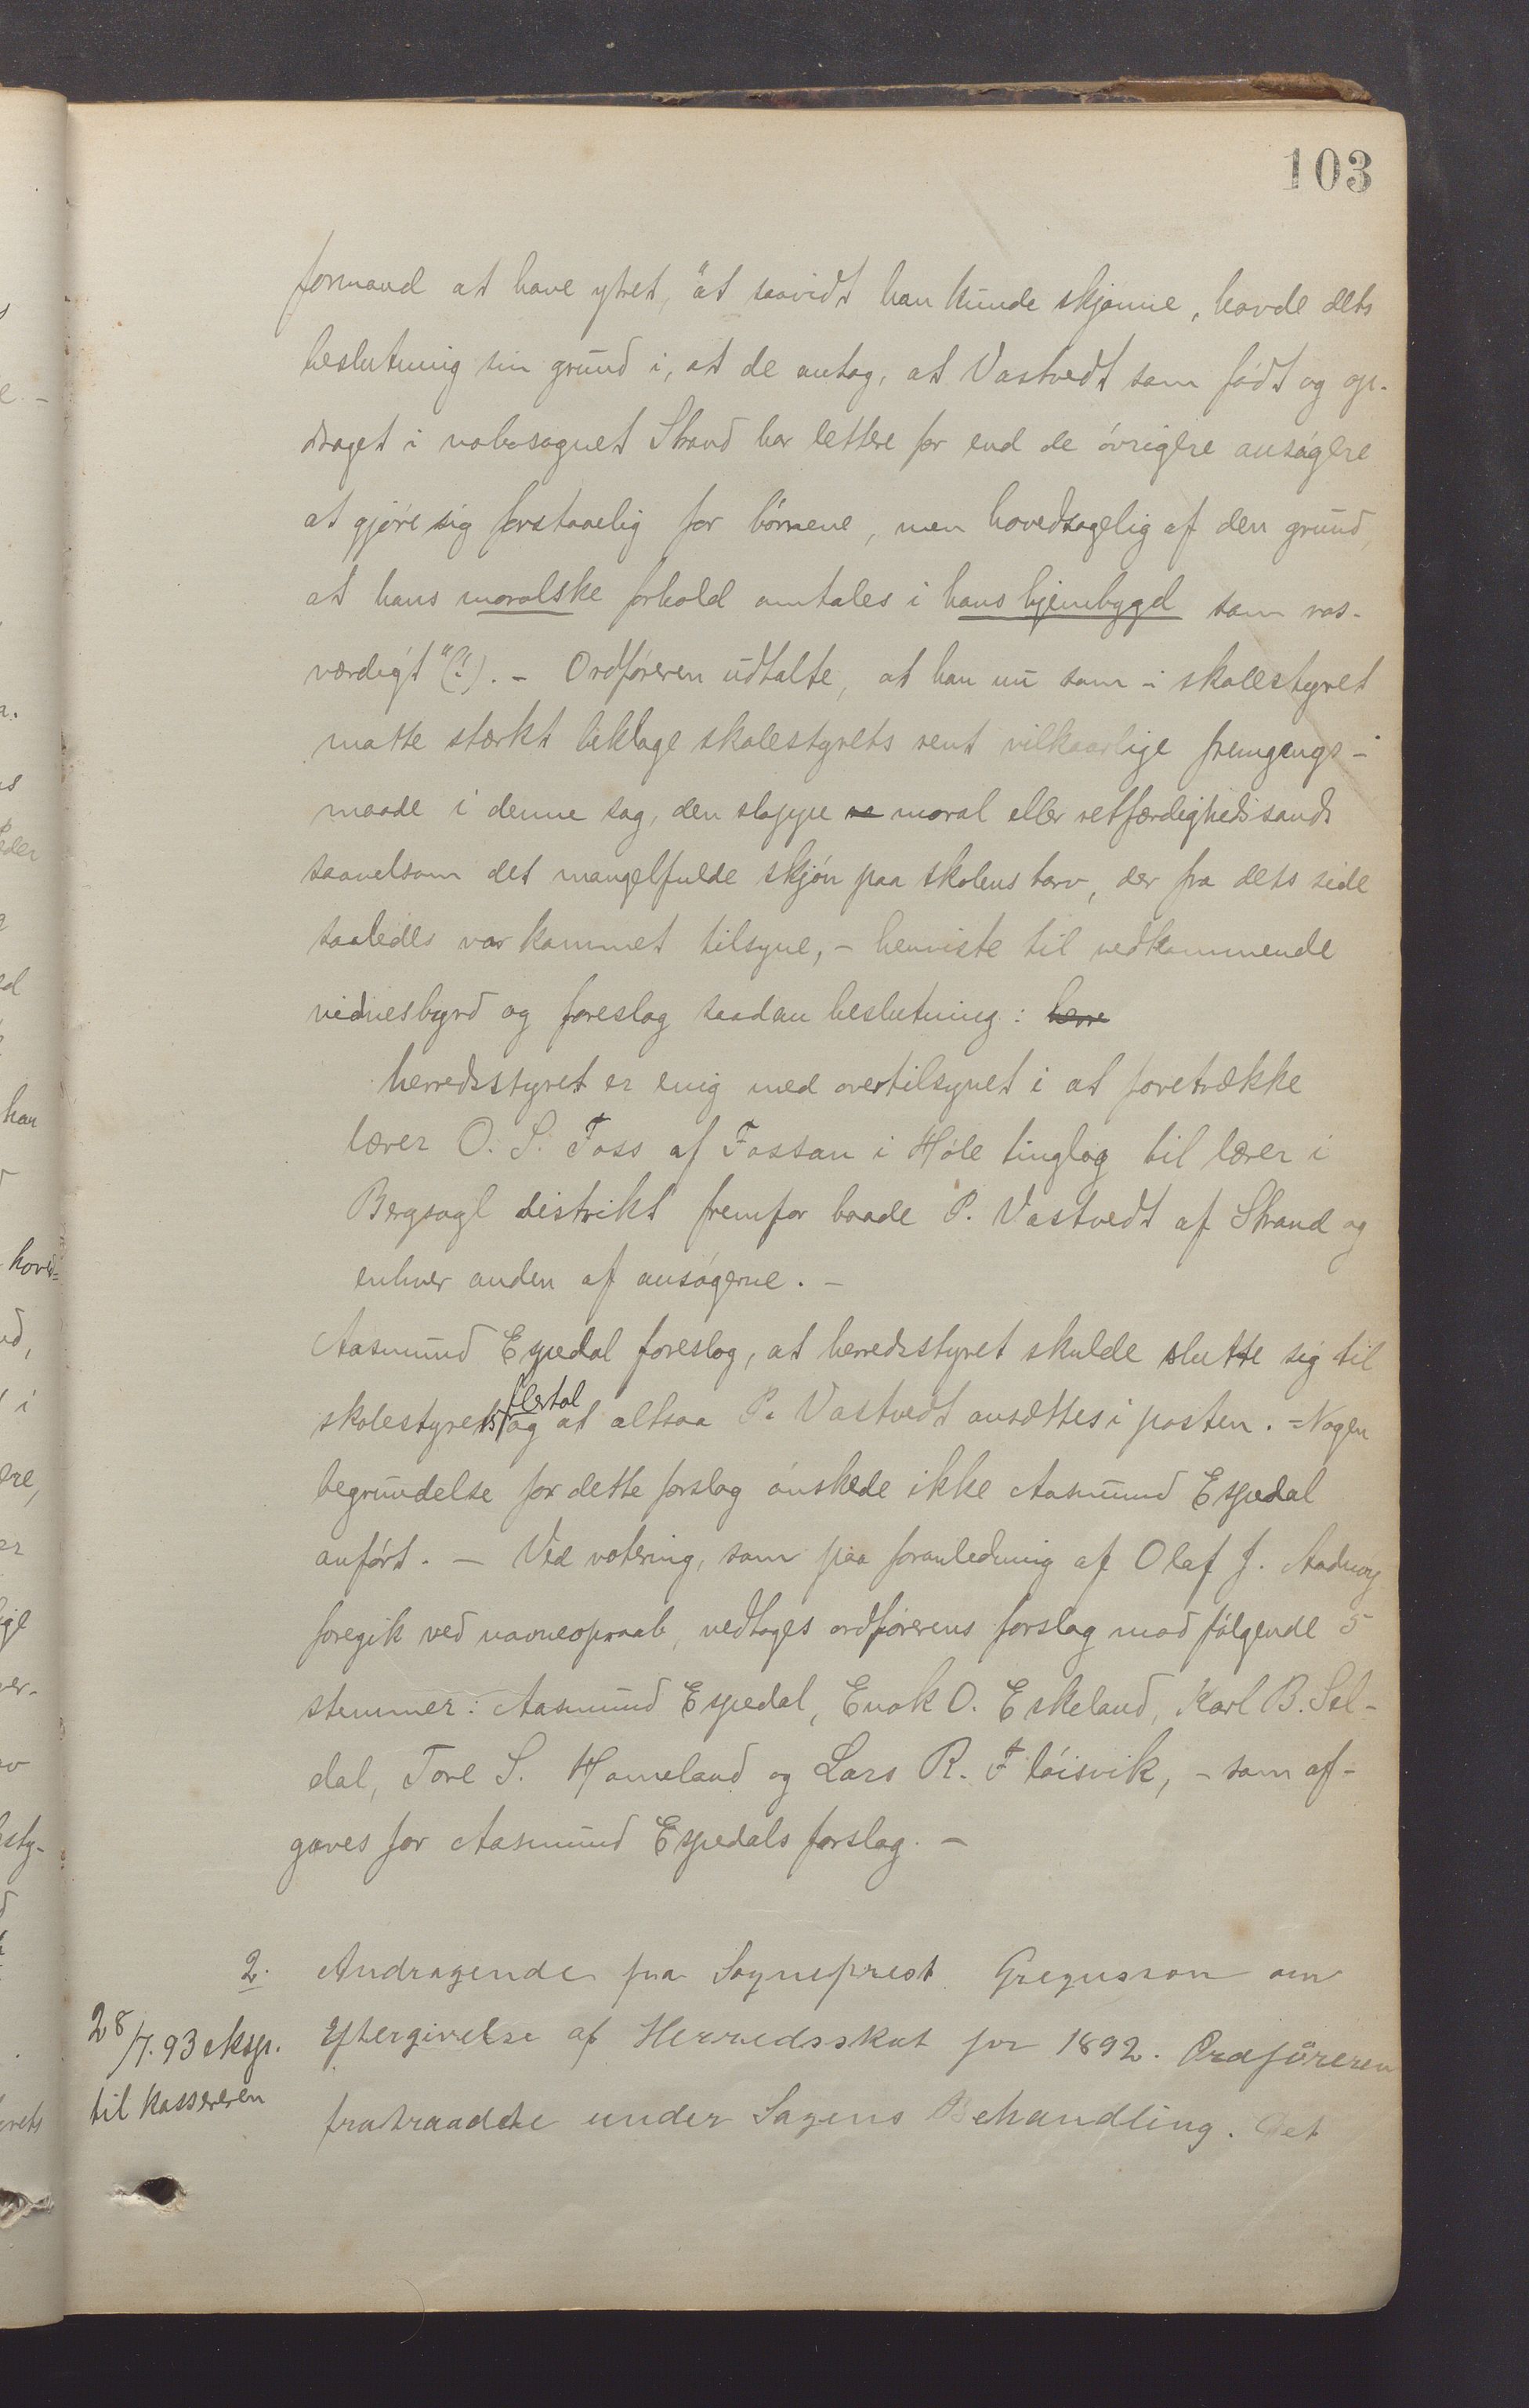 103
formand at have ytret, "at saavidt han kunde skjønne, havde dets
beslutning sin grund i, at de antog, at Vastvedt som født og op-
draget i nabosognet Strand har lettere for end de øvrigere ansøgere
at gjøre sig forstaaelig for børnene, men hovedsagelig af den grund,
at hans moralske forhold omtales i hans hjembygd som ros-
værdigt"(?!). - Ordføreren udtalte, at han nu som i skolestyret
matte stærkt beklage skolestyrets rent vilkaarlige fremgangs-
maade i denne sag, den slappe moral eller retfærdighedssands
saavelsom det mangelfulde skjøn paa skolens tarv, der fra dets side
saaledes var kommet tilsyne, - henviste til vedkommende
vidnesbyrd og foreslog saadan beslutning: herre
herredsstyret er enig med overtilsynet i at foretrække
lærer O. S. Foss af Fossan i Høle tinglag til lærer i
Bergsagl distrikt fremfor baade P. Vastvedt af Strand og
enhver anden af ansøgerne. -
Aasmund Espedal foreslog, at herredsstyret skulde slutte sig til
flertal
skolestyrets og at altsaa P. Vastvedt ansættes i posten. = Nogen
begrundelse for dette forslag ønskede ikke Aasmund Espedal
anført. - Ved votering, som paa foranledning af Olaf J. Aadnøy
foregik ved navneopraab, vedtoges ordførerens forslag mod følgende 5
stemmer: Aasmund Espedal, Enok O. Eskeland, Karl B. Sel-
dal, Tore S. Hameland og Lars R. Fløisvik, - som af-
gaves for Aasmund Espedals forslag. -
2. Andragende fra Sogneprest Gregusson om
28/7.93 eksp. Eftergivelse af Herredsskat for 1892. Ordføreren
til kassereren fratraadte under Sagens Behandling. Det